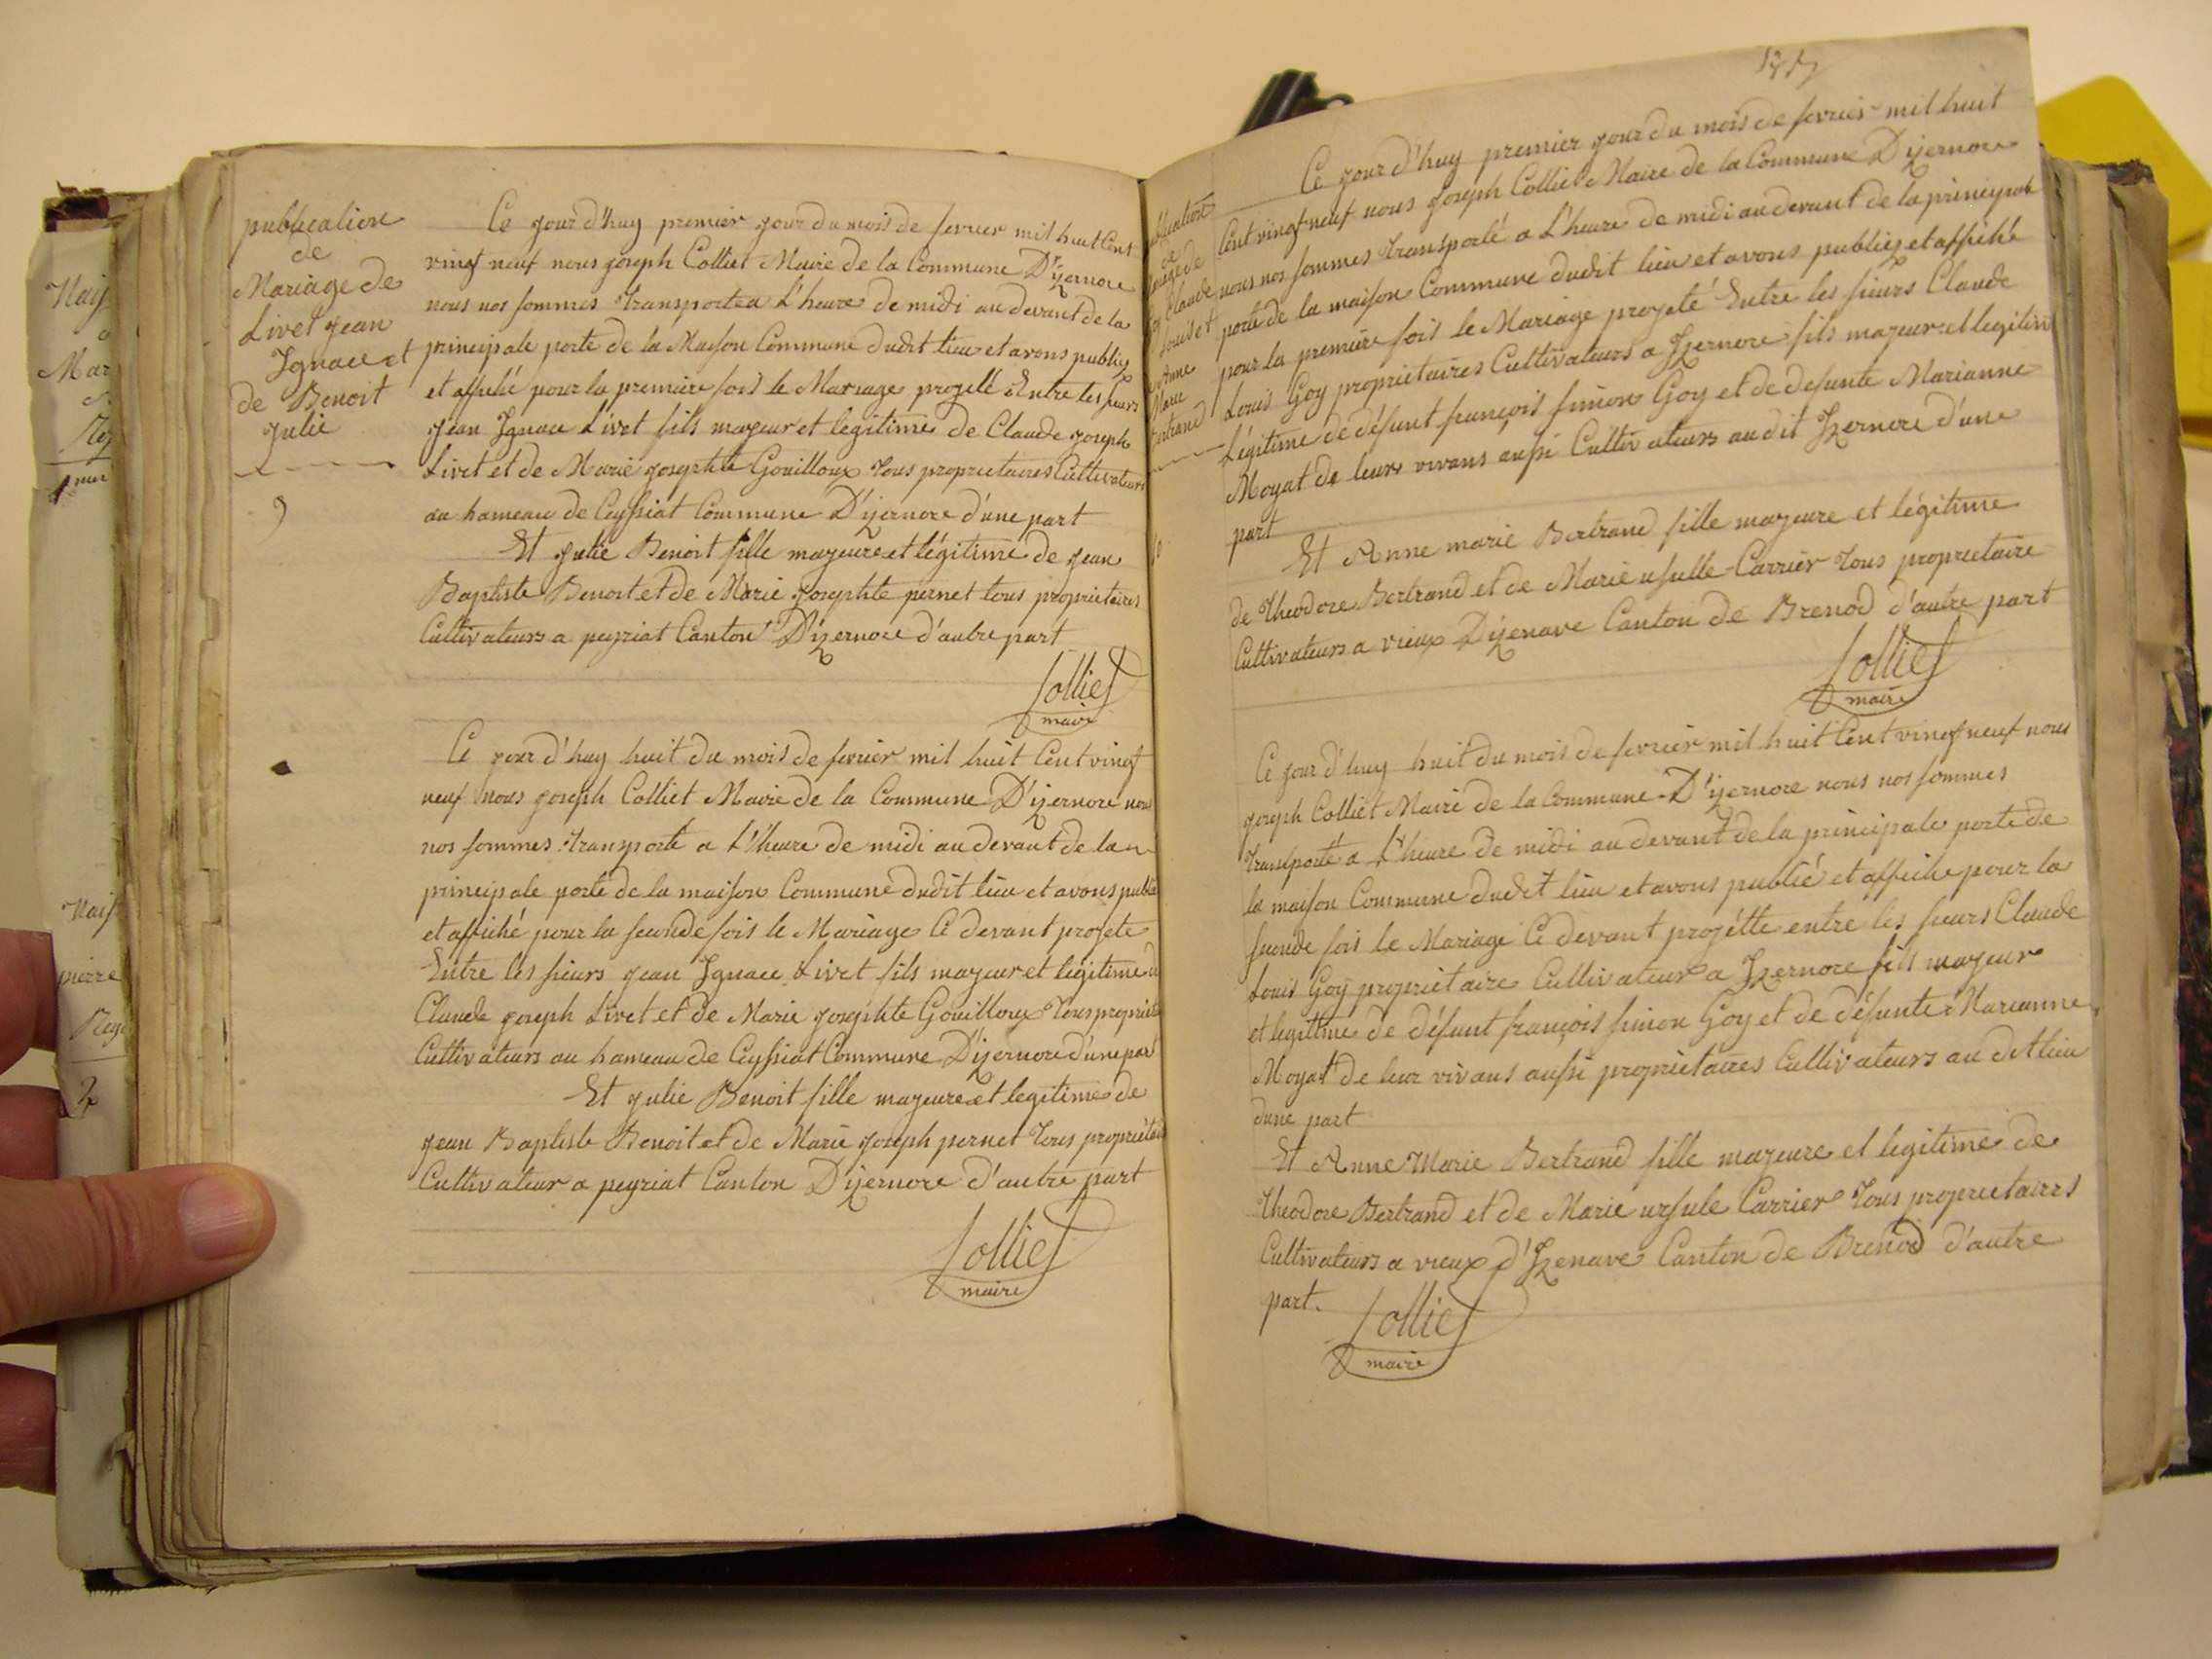 publication
de
Mariage de
Livet jean
Ignace et
de Benoit
Julie
9
Ce jour d'huy premier jour du mois de fevrier mil huit Cent
vingt neuf nous joseph Colliet Maire de la Commune D'izernore
nous nos sommes transporte a L'heure de midi au devant de la
principale porte de la Maison Commune dudit lieu et avons publiez
et affiché pour la premiere fois le Mariage progeté Entre les sieurs
jean Ignace Livet fils majeur et legitime de Claude joseph
Livet et de Marie josephte Gouilloux tous proprietaires Cultivateurs
au hameau de Ceyssiat Commune D'izernore d'une part
Et julie Benoit fille majeure et légitime de jean
Baptiste Benoit et de Marie josephte pernet tous proprietaires
Cultivateurs a peyriat Canton D'izernore d'autre part
Colliet
maire
Ce jour d'huy huit du mois de fevrier mil huit Cent vingt
neuf nous joseph Colliet Maire de la Commune D'izernore nous
nos sommes transporte a L'heure de midi au devant de la
principale porte de la maison Commune dudit lieu et avons publié
et affiché pour la seconde fois le Mariage Ce devant projete
Entre les sieurs jean Ignace Livet fils majeur et légitime de
Claude joseph Livet et de Marie josephte Gouilloux tous proprietaires
Cultivateurs au hameau de Ceyssiat Commune D'izernore d'une part
Et julie Benoit fille majeure et legitime de
jean Baptiste Benoit et de Marie joseph pernet tous proprietaires
Cultivateur a peyriat Canton D'izernore d'autre part
Colliet
maire
publication
de
Mariage de
Goy Claude
Louis et
de Anne
Marie
Bertrand
10
Ce jour d'huy premier jour du mois de fevrier mil huit
Cent vingt neuf nous joseph Colliet Maire de la Commune D'izernore
nous nos sommes transporté a L'heure de midi au devant de la principale
porte de la maison Commune dudit lieu et avons publiez et affiché
pour la premiere fois le Mariage projeté Entre les sieurs Claude
Louis Goy proprietaires Cultivateurs a Izernore fils majeur et legitim
Légitime de défunt françois simon Goy et de defunte Marianne
Moyat de leurs vivans aussi Cultivateurs audit Izernore d'une
part
Et Anne marie Bertrand fille majeure et légitime
de theodore Bertrand et de Marie usulle Carrier tous proprietaire
Cultivateurs a vieux D'izenave Canton de Brenod d'autre part
Colliet
maire
Ce jour d'huy huit du mois de fevrier mil huit Cent vingt neuf nous
joseph Colliet Maire de la Commune D'izernore nous nos sommes
transporté a L'heure de midi au devant de la principale porte de
la maison Commune dudit lieu et avons publié et affiche pour la
seconde fois le Mariage Ce devant projétte entre les sieurs Claude
Louis Goy proprietaire Cultivateur a Izernore fils majeur
et legitime de défunt françois simon Goy et de défunte Marianne
Moyat de leur vivans aussi proprietaires Cultivateurs au dit lieu
dune part
Et Anne Marie Bertrand fille majeure et legitime de
theodore Bertrand et de Marie ursule Carrier tous proprietaires
Cultivateurs a vieux d'Izenave Canton de Brenod d'autre
part.
Colliet
maire
Mar
pierre
2